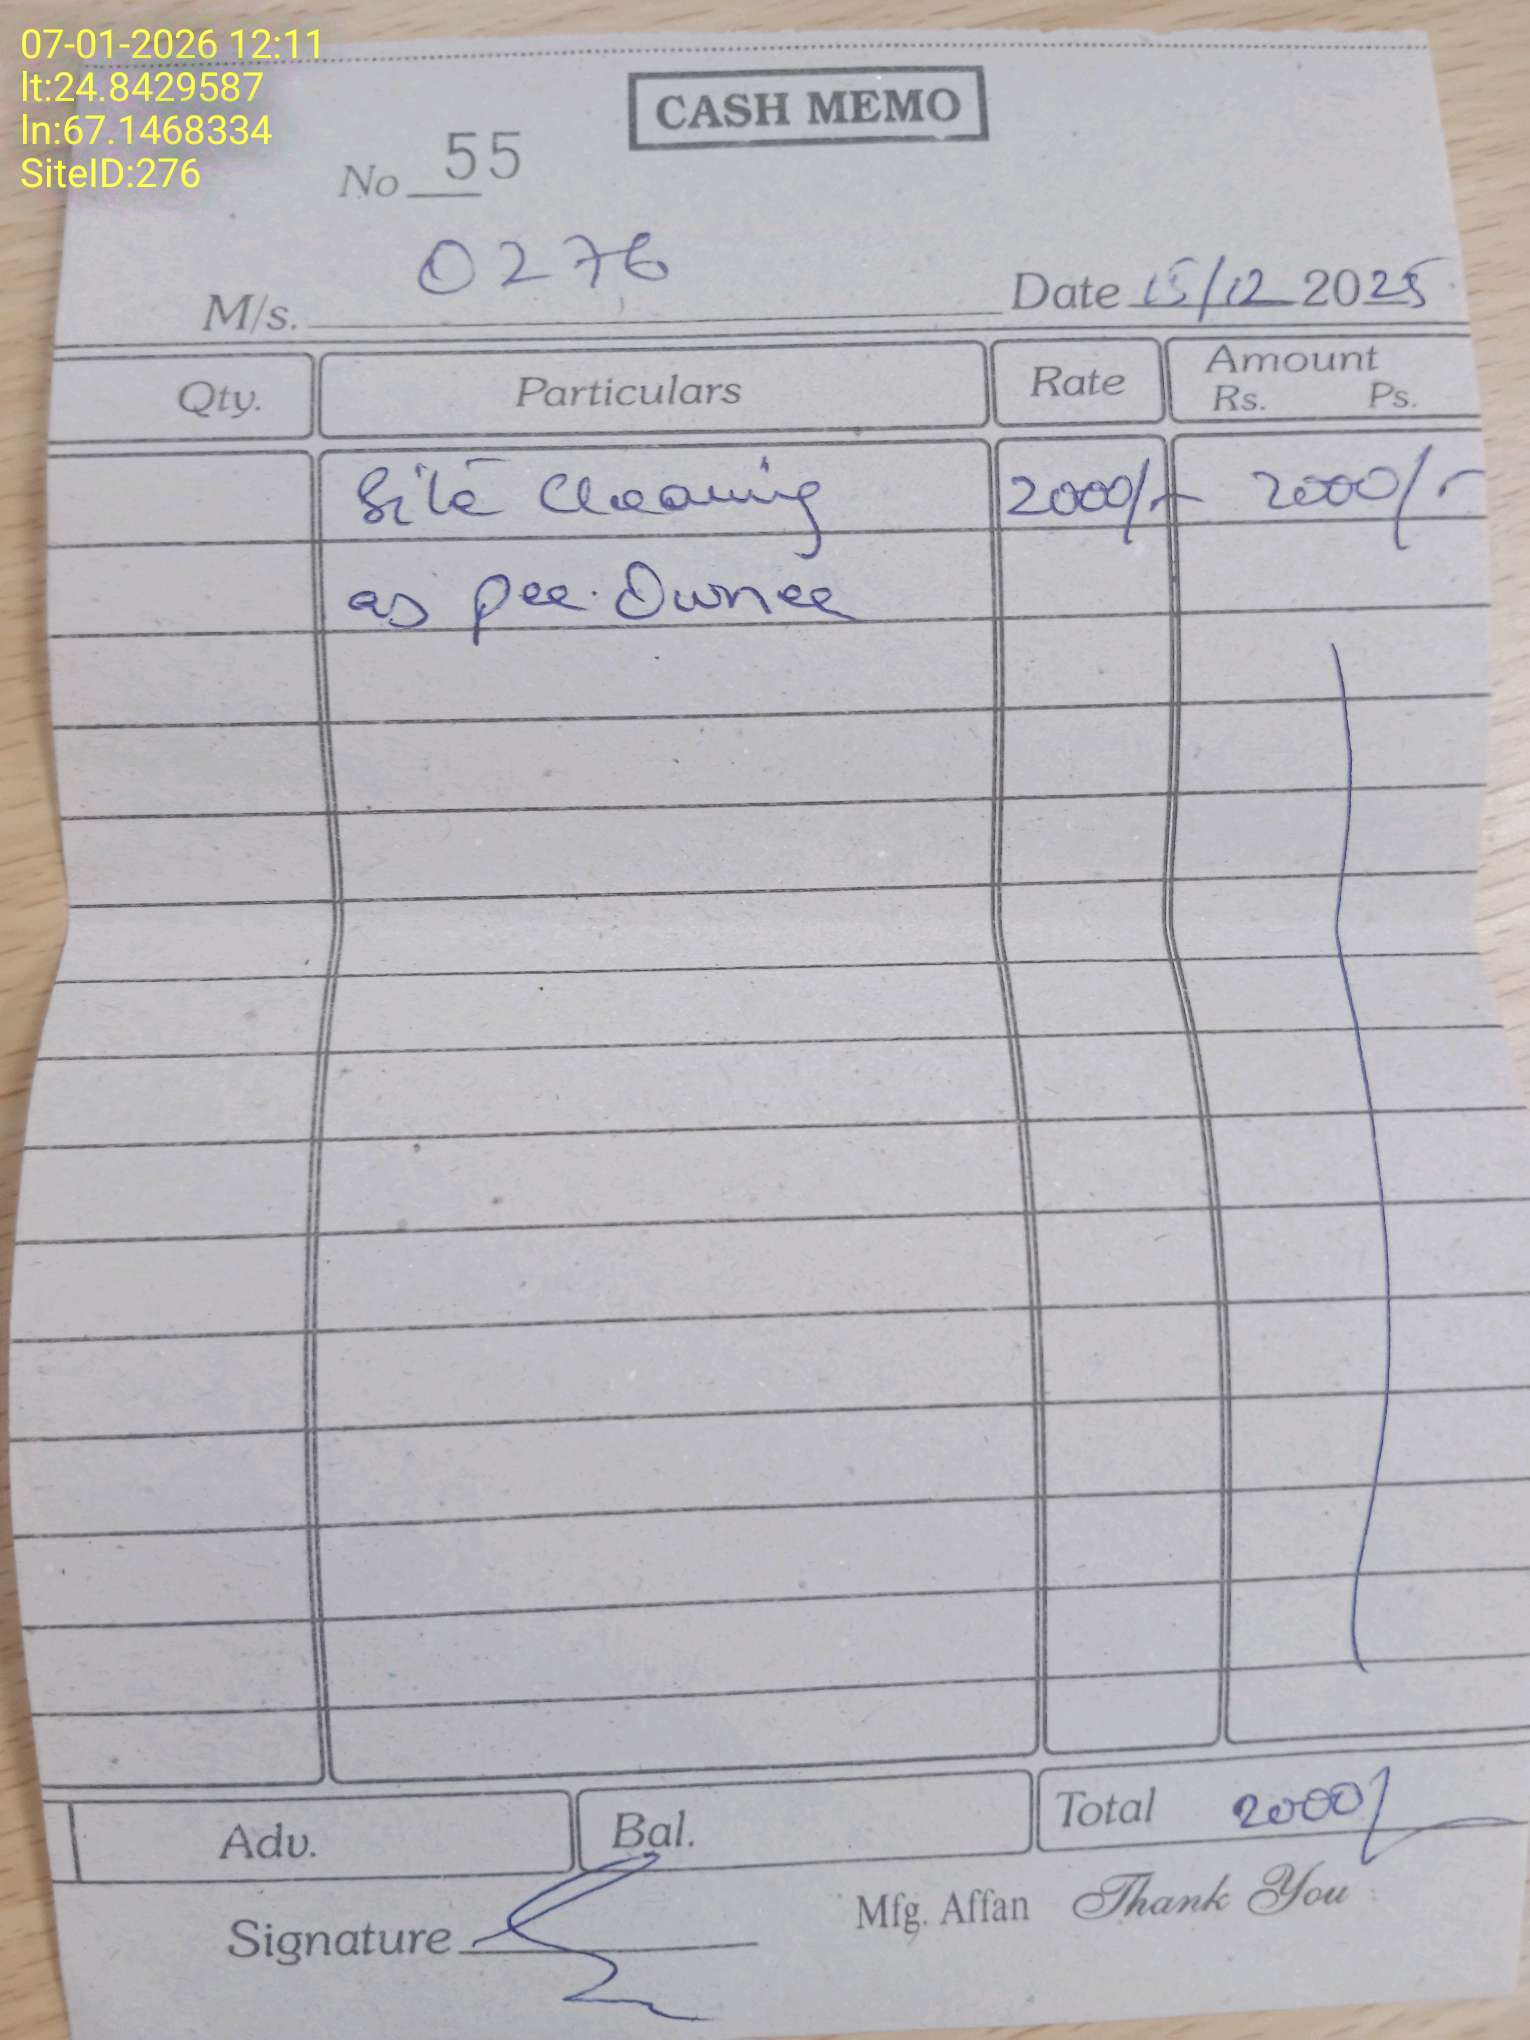 07-01-2026 12:11
lt:24.8429587
ln:67.1468334
SiteID:276
CASH MEMO
No 55
M/s. 0276 Date 15/12 2025
Qty. Particulars Rate Amount Rs. Ps.
Site Cleaning 2000/- 2000/-
as per Owner
Adv. Bal. Total 2000/-
Mfg. Affan Thank You
Signature